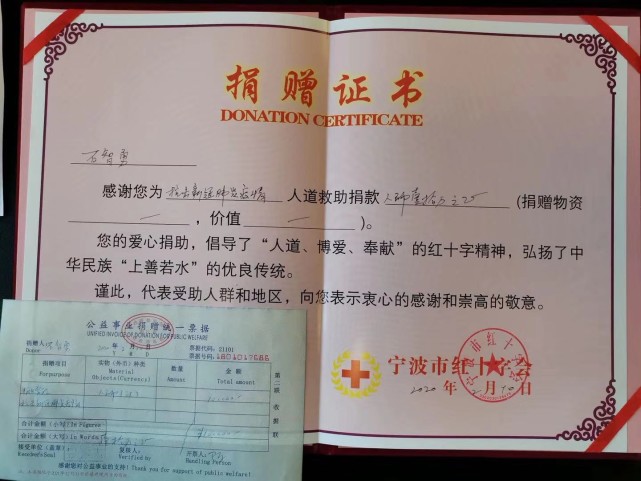 捐赠证书
DONATION CERTIFICATE
石智勇
感谢您为 抗击新冠肺炎疫情 人道救助捐款 人币壹拾万元 (捐赠物资
,价值 )。
您的爱心捐助,倡导了“人道、博爱、奉献”的红十字精神,弘扬了中
华民族“上善若水”的优良传统。
谨此,代表受助人群和地区,向您表示衷心的感谢和崇高的敬意。
宁波市红十字会
2020 年 月 10 日
公益事业捐赠统一票据
UNIFIED INVOICE OF DONATION FOR PUBLIC WELFARE
捐赠人
Donor
票据代码: 21101
票据号码: 1801017665
捐赠项目 实物(外币)种类 数量 金额
Forpurpose Material Objects(Currency) Amount Total amount
第二联 收据联
合计金额(小写)In Figures
合计金额(大写)In Words
接受单位(盖章): 复核人: 开票人:
Receiver's Seal Verified by Handling Person
感谢您对公益事业的支持! Thank you for support of public welfare!